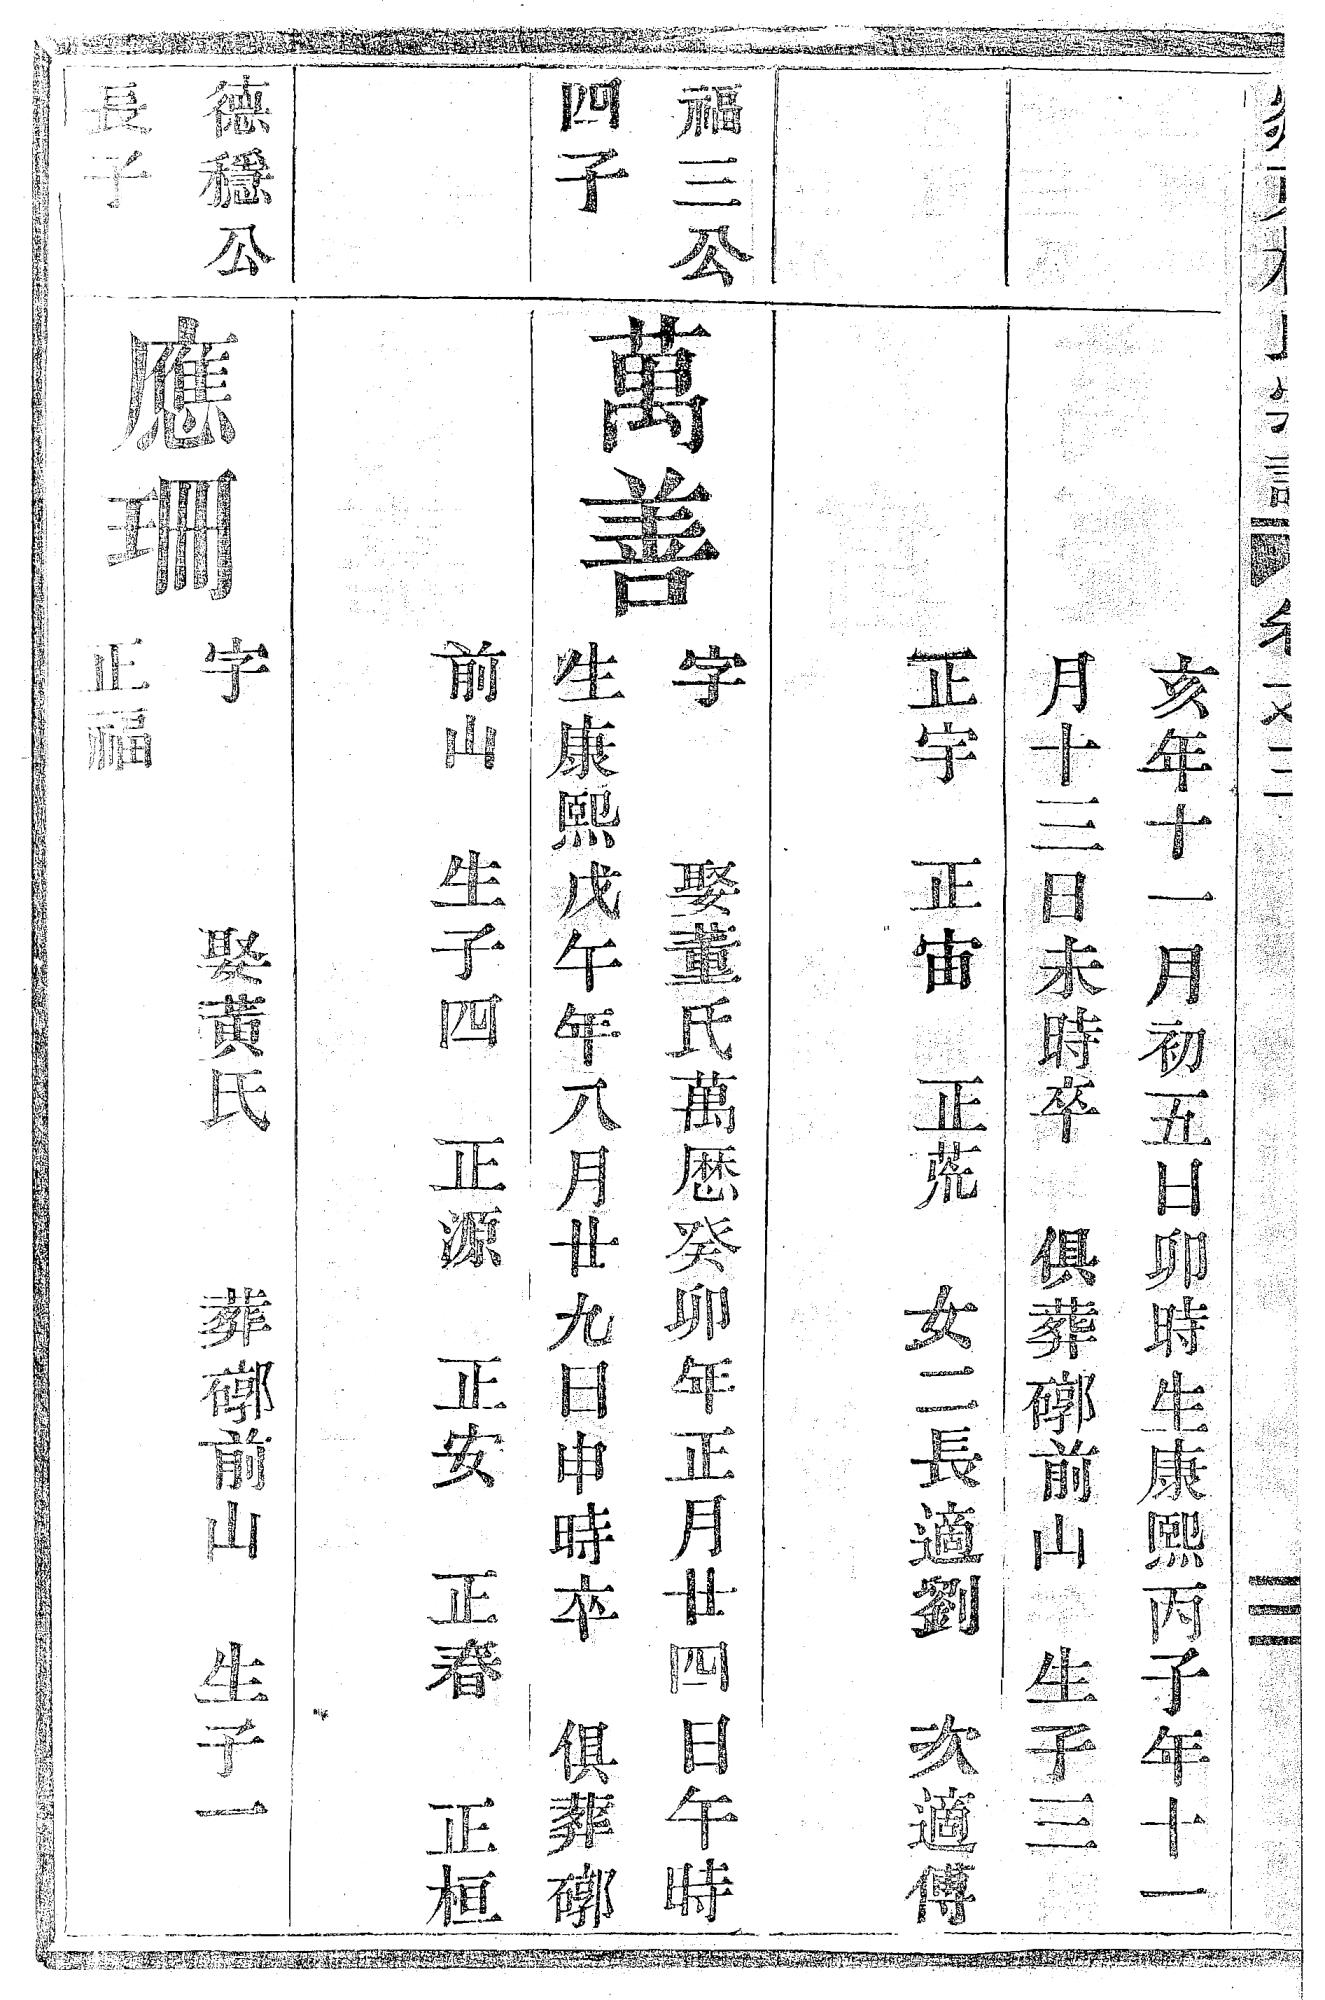 亥年十一月初五日卯時生康熙丙子年十一
月十三日未時卒　俱葬𨟠前山　生子三
正宇　正宙　正荒　女二長適劉　次適傅
福三公
四子
萬善
字　娶董氏萬厯癸卯年正月廿四日午時
生康熙戊午年八月廿九日申時卒　俱葬
前山　生子四　正源　正安　正春　正桓
德穩公
長子
應珊
字　娶黃氏　葬前山　生子一
正福